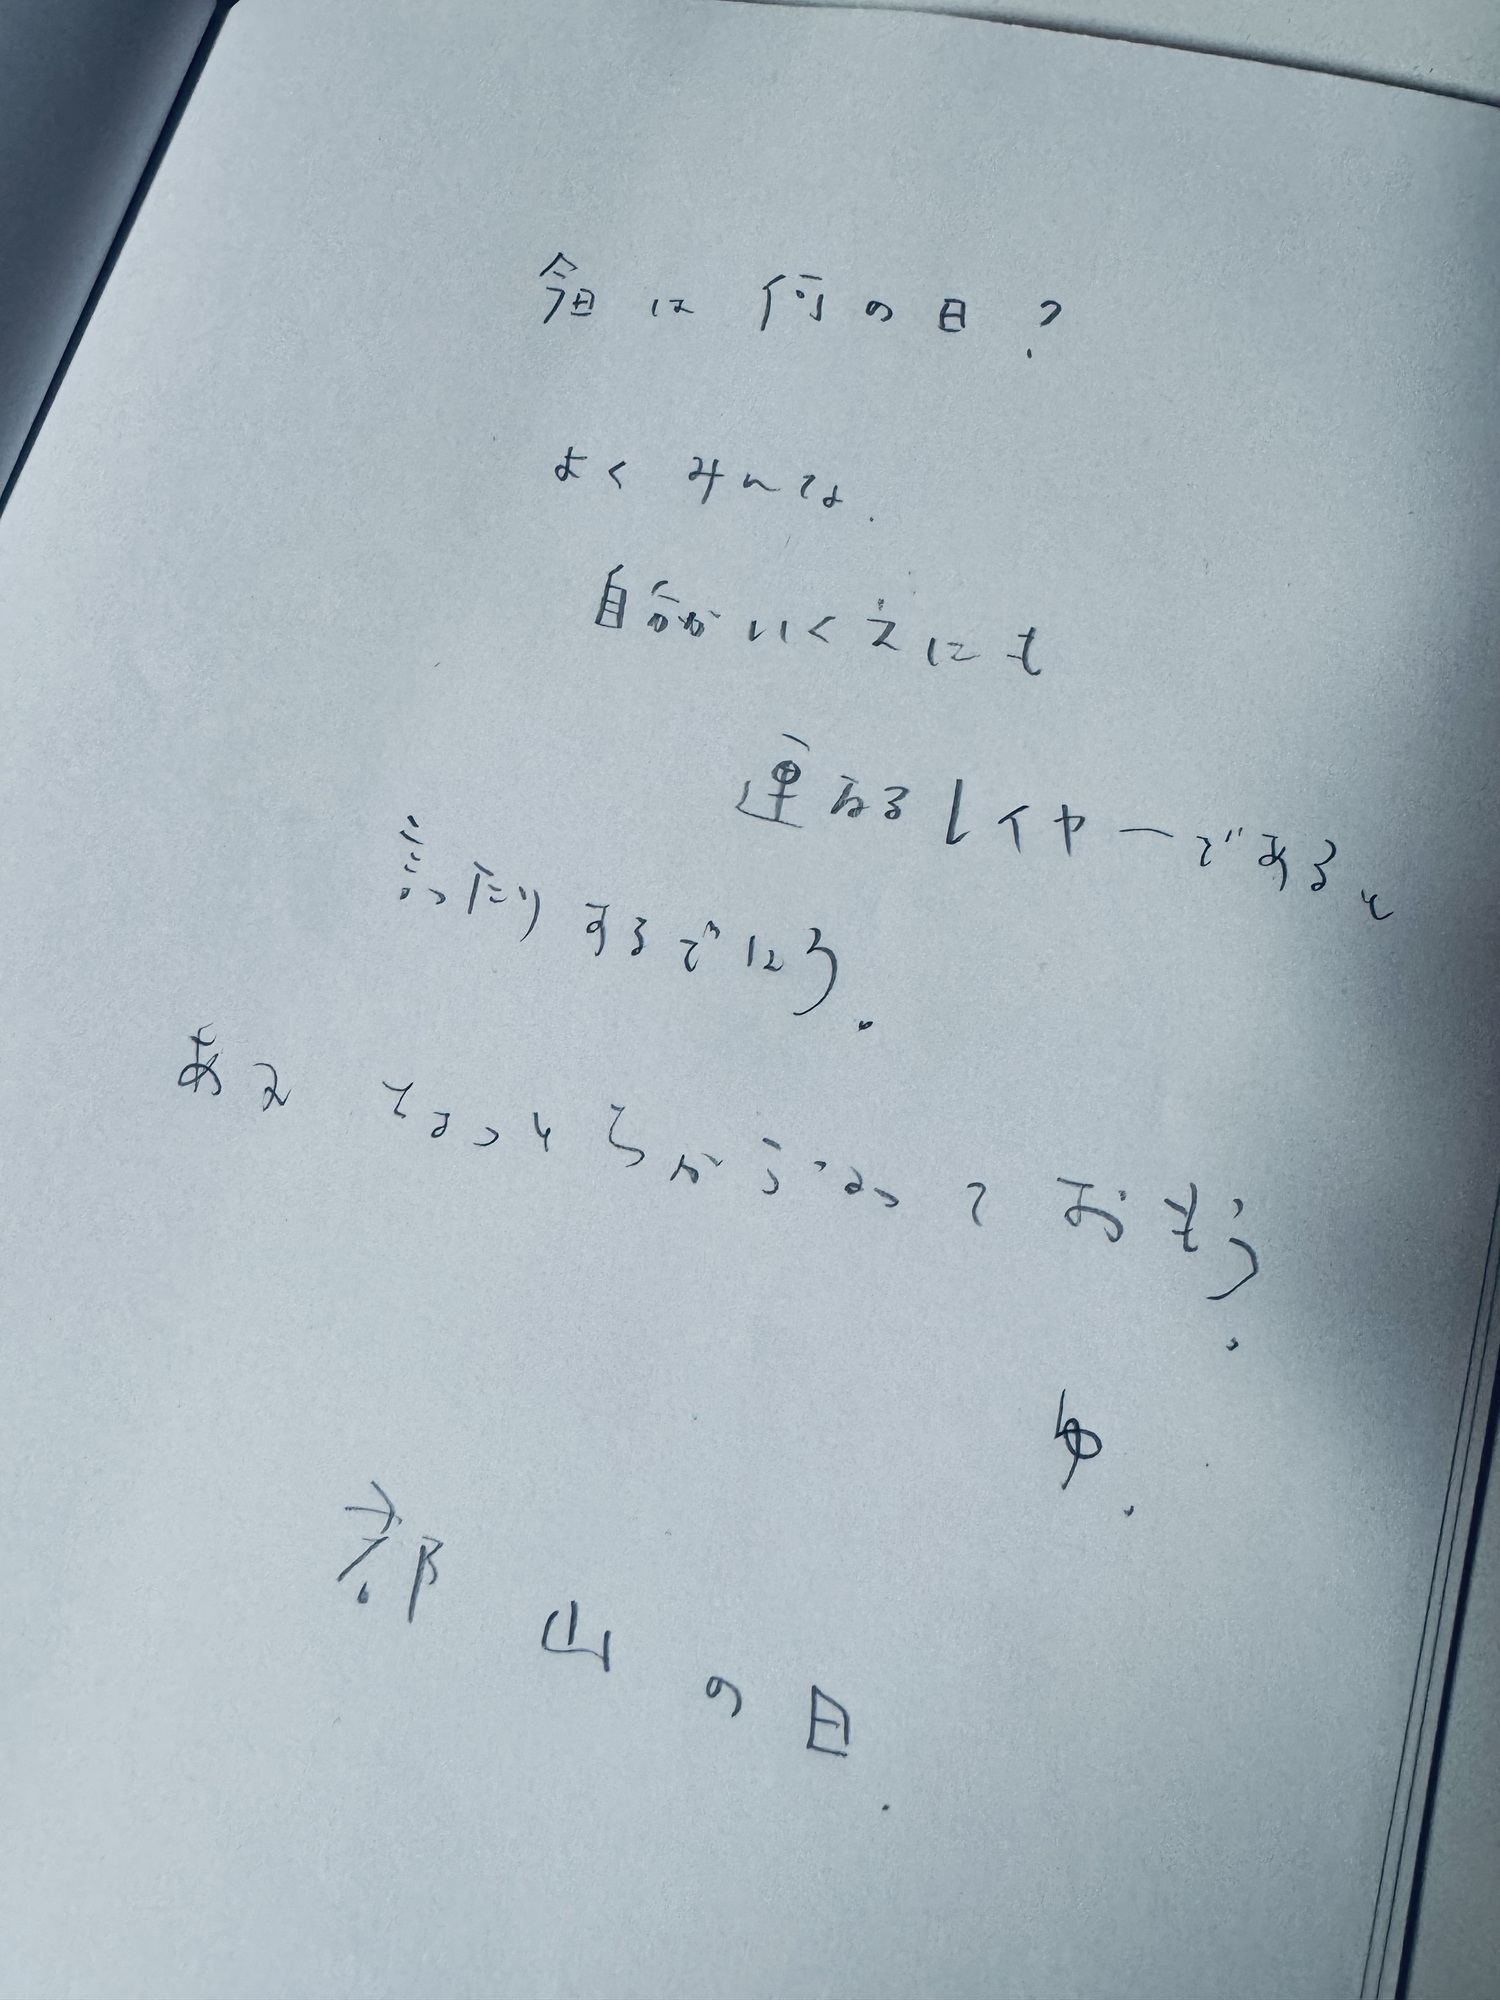 今日は何の日?
よく みんな.
自分がいくえにも
連なるレイヤーであると
言ったりするでしょう.
あえ ちょっとちがうなって おもう.
ゆ.
郡山の日.